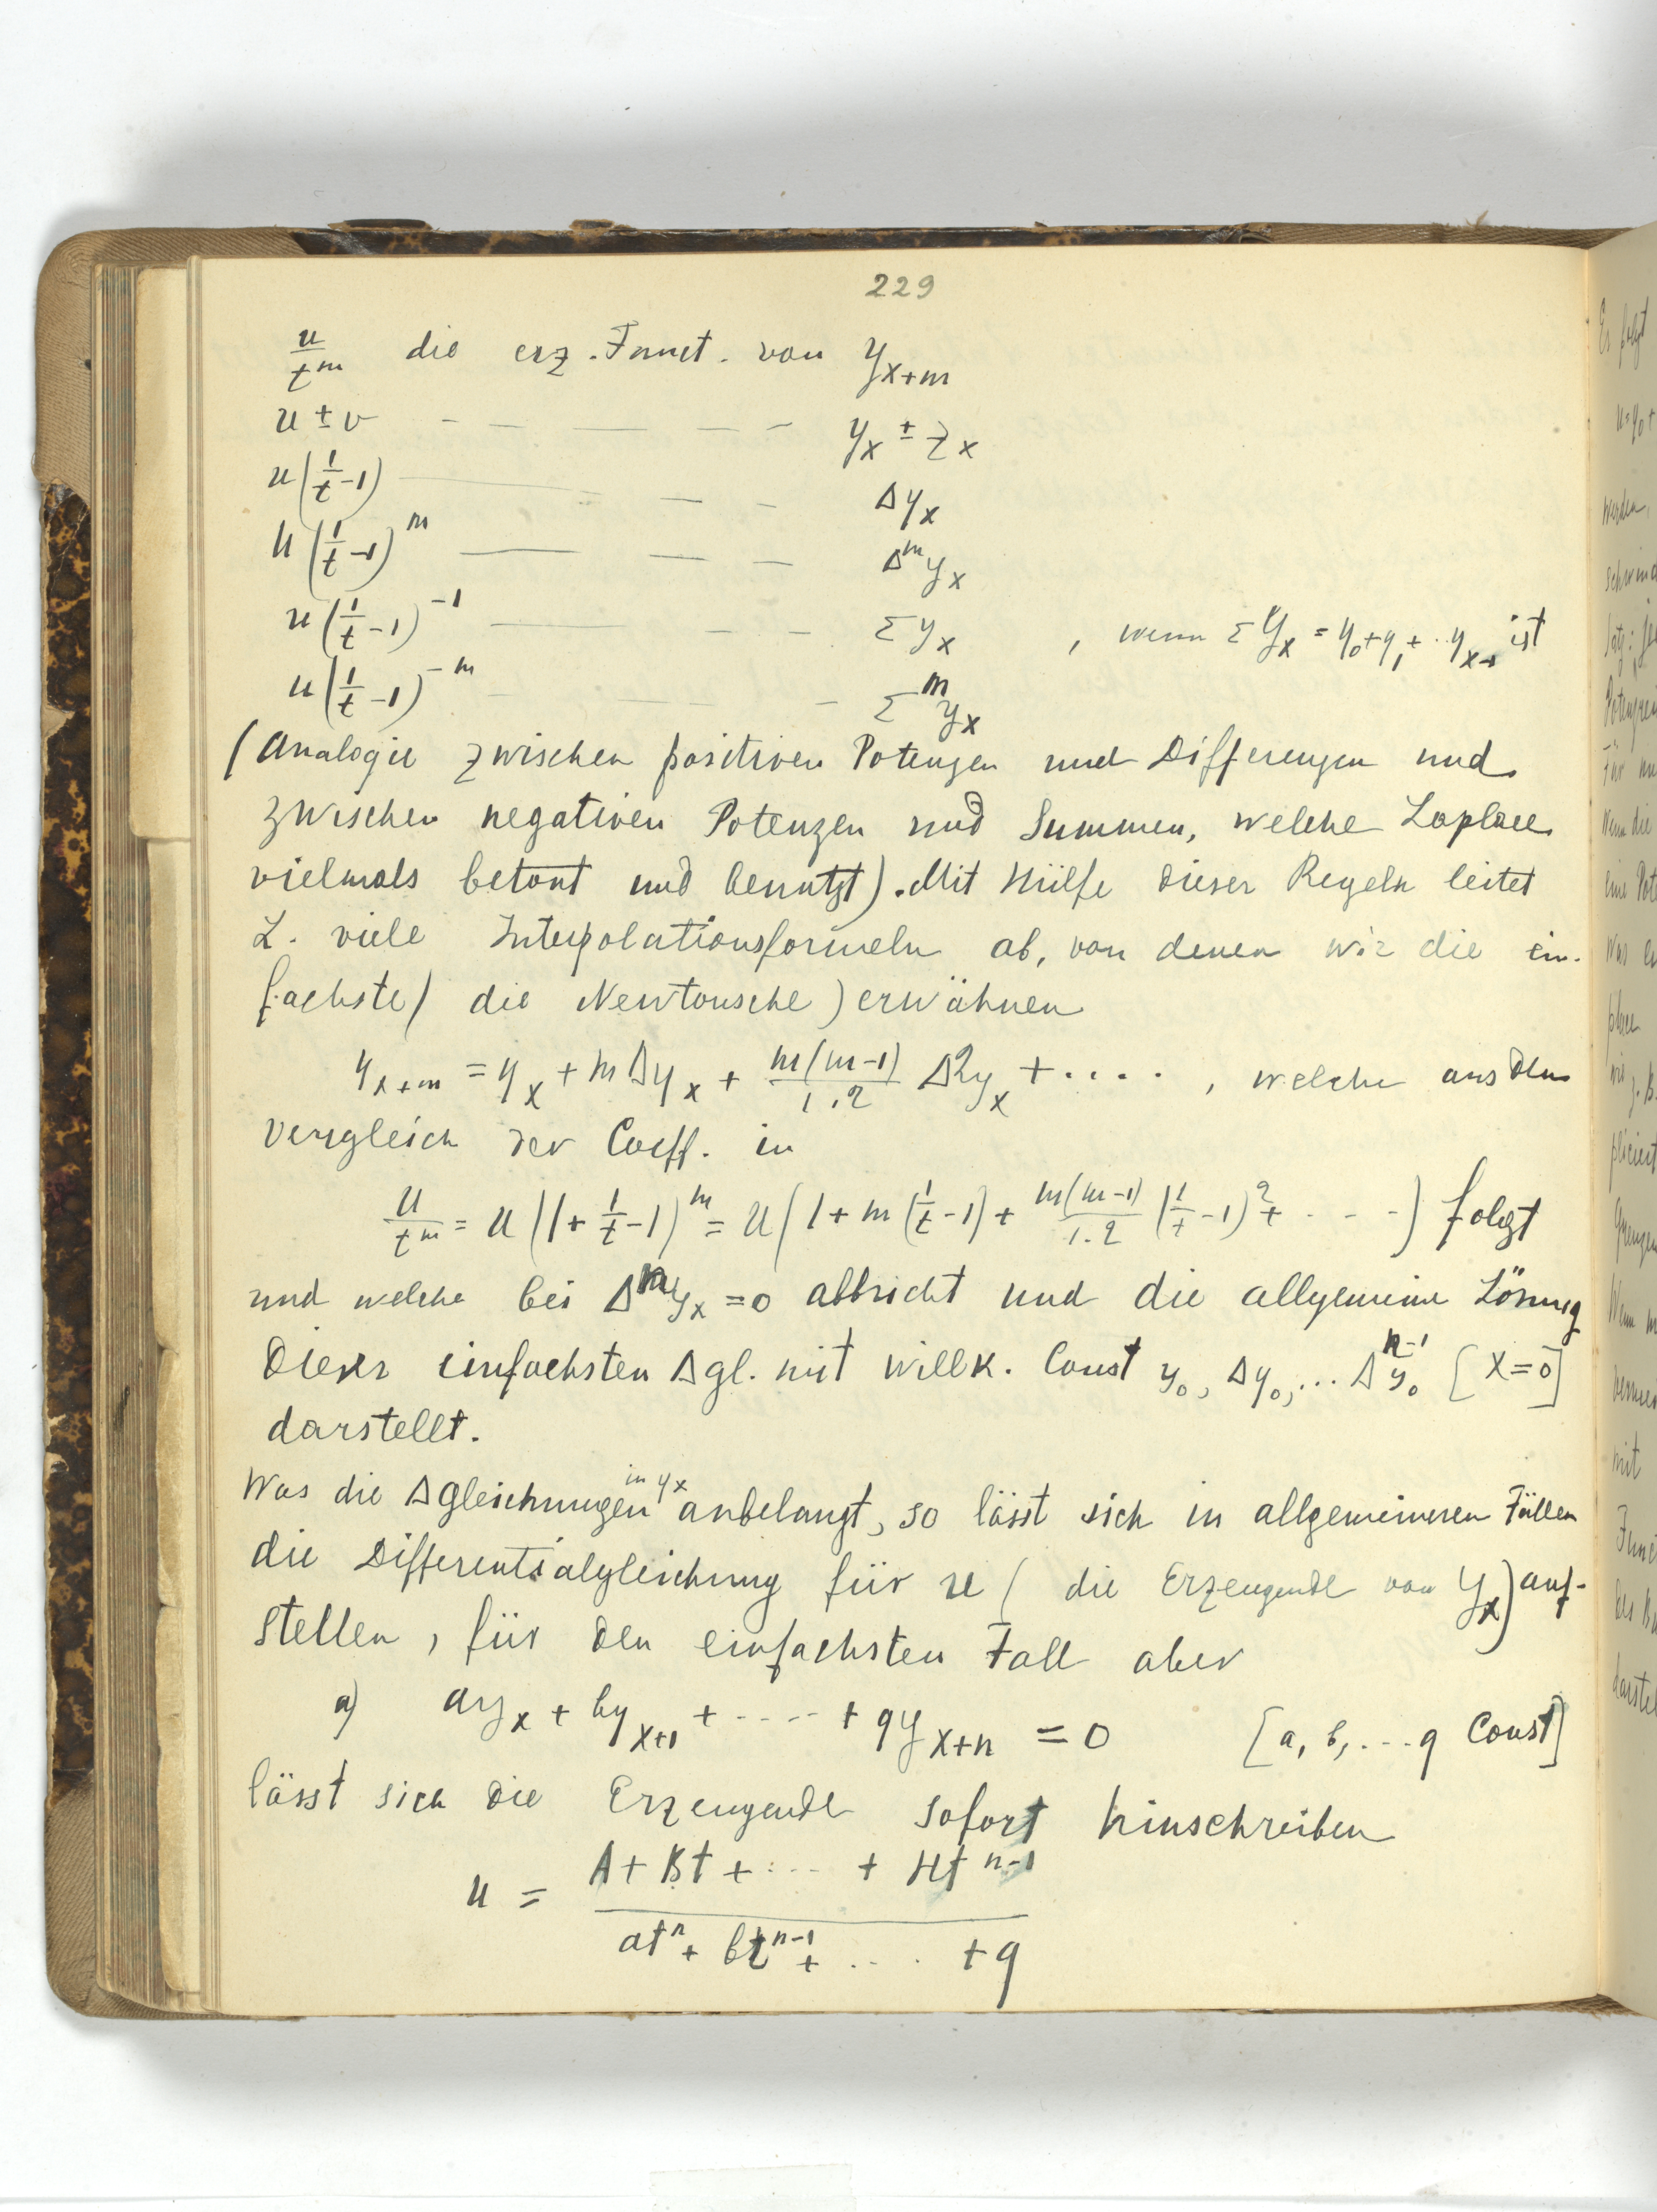 229
u/t^m die erz. Funct. von y_{x+m}
u ± v — — — — — y_x ± z_x
u(1/t -1) — — — Δy_x
u(1/t -1)^m — — — Δ^m y_x
u(1/t -1)^{-1} — — — Σy_x , wenn Σy_x = y_0+y_1+..y_{x-1} ist
u(1/t -1)^{-m} — — — Σ^m y_x
(Analogie zwischen positiven Potenzen und Differenzen und
zwischen negativen Potenzen und Summen, welche Laplace
vielmals betont und benutzt). Mit Hülfe dieser Regeln leitet
L. viele Interpolationsformeln ab, von denen wir die ein-
fachste (die Newtonsche) erwähnen
y_{x+m} = y_x + mΔy_x + m(m-1)/1.2 Δ²y_x + ...., welche aus dem
Vergleich der Coeff. in
u/t^m = u(1+ 1/t -1)^m = u(1+m(1/t -1)+ m(m-1)/1.2 (1/t -1)² + ---) folgt
und welche bei Δ^n y_x = 0 abbricht und die allgemeine Lösung
dieser einfachsten Δgl. mit willk. Const y_0, Δy_0,... Δ^{n-1}y_0 [x=0]
darstellt.
Was die Δgleichungen in y_x anbelangt, so lässt sich in allgemeineren Fällen
die Differentialgleichung für u (die Erzeugende von y_x) auf-
stellen, für den einfachsten Fall aber
a) ay_x + by_{x+1} + ---- + qy_{x+n} = 0 [a, b, ... q Const]
lässt sich die Erzeugende sofort hinschreiben
u = A + Bt + ... + Ht^{n-1}
at^n + bt^{n-1} + .... + q